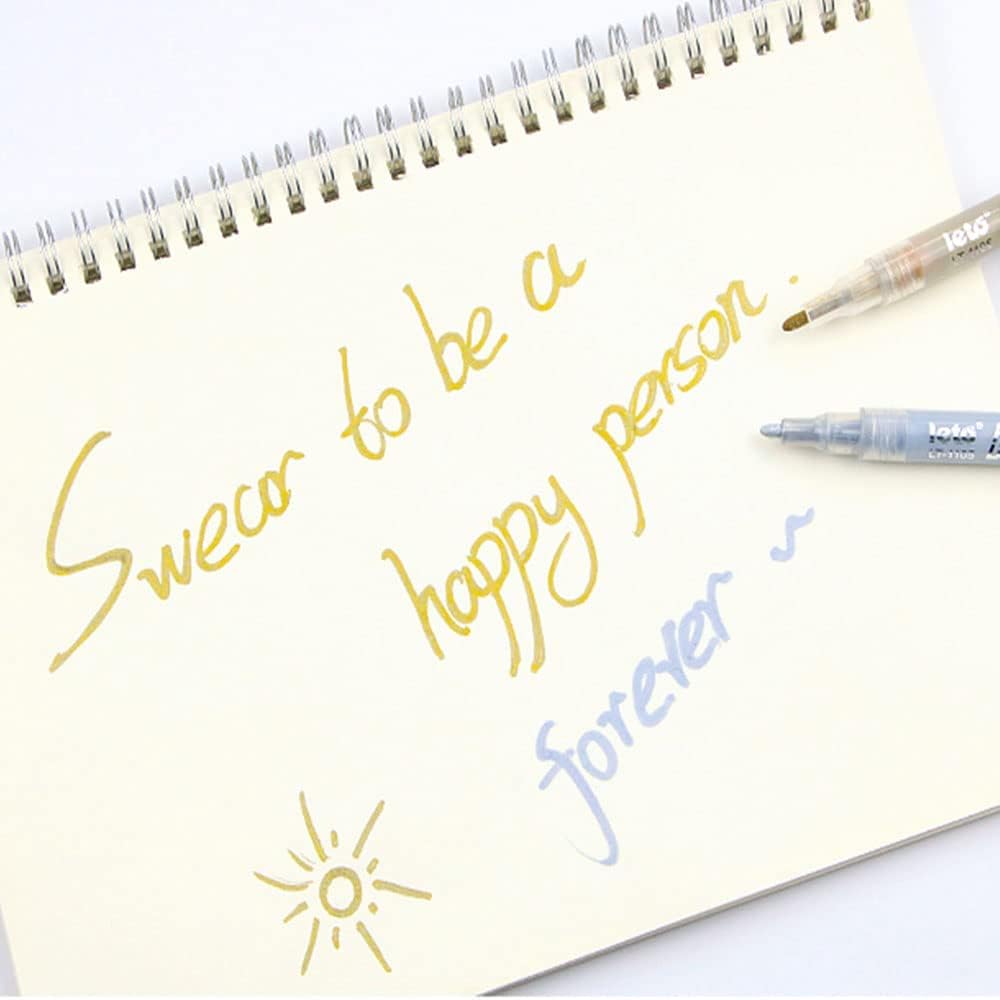 Swear to be a
happy person.
forever ~
leto®
LT-1105
leto®
LT-1105